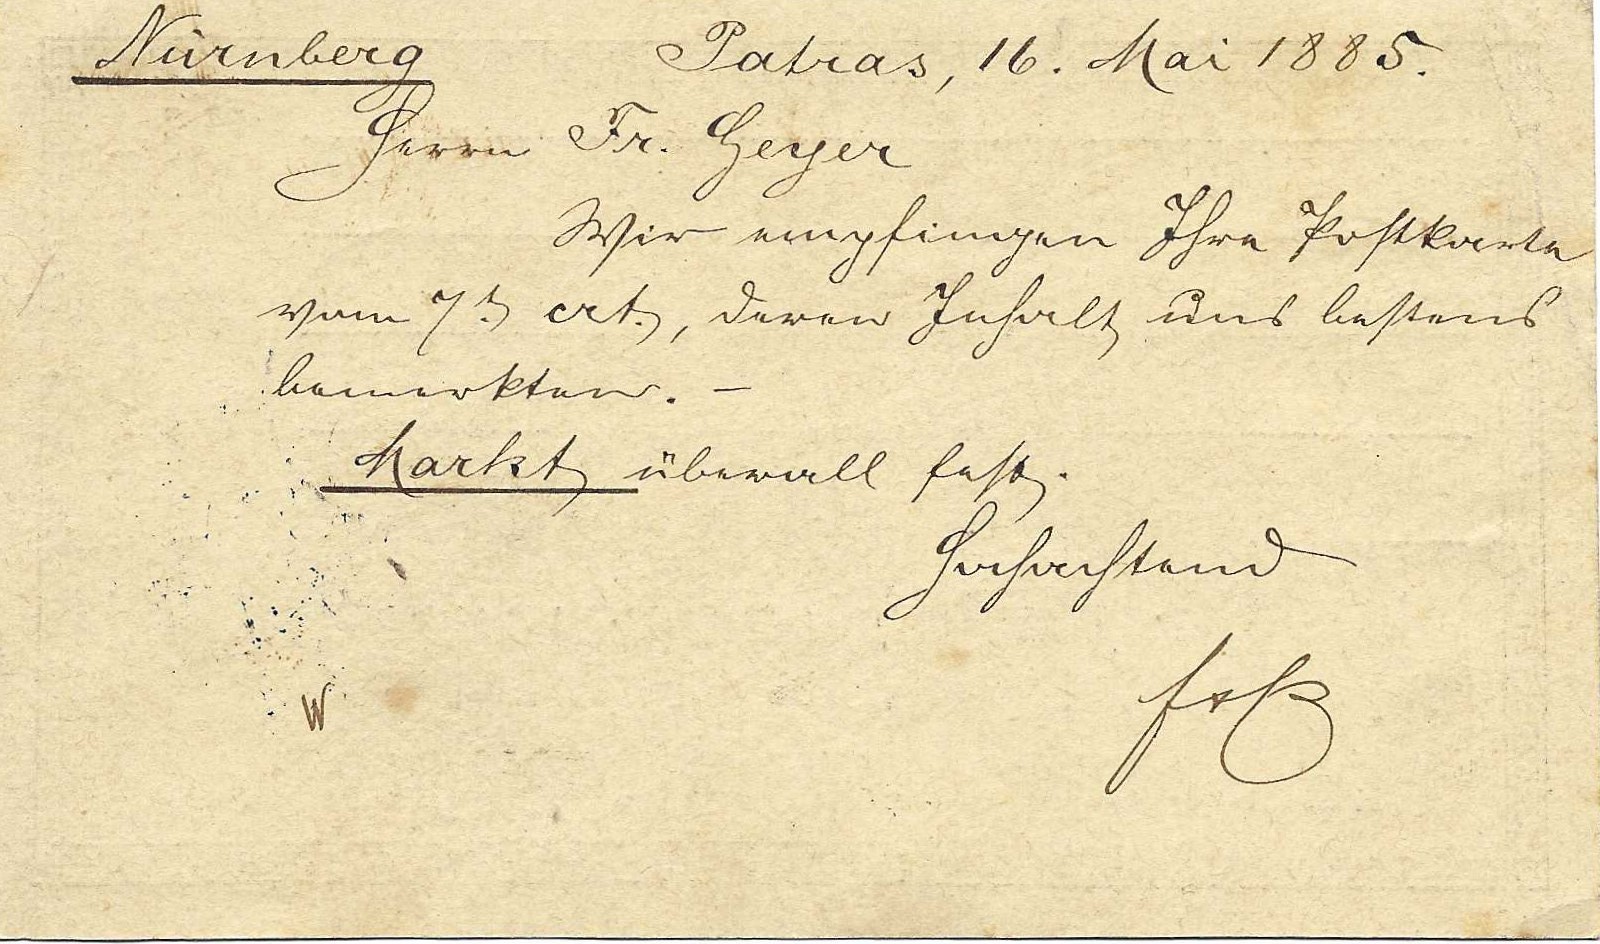 Nürnberg Patras, 16. Mai 1885.
Herrn Fr. Geyer
Wir empfingen Ihre Postkarte
vom 7t. crt., deren Inhalt uns bestens
bemerkten. –
Markt überall fest.
Hochachtend
W